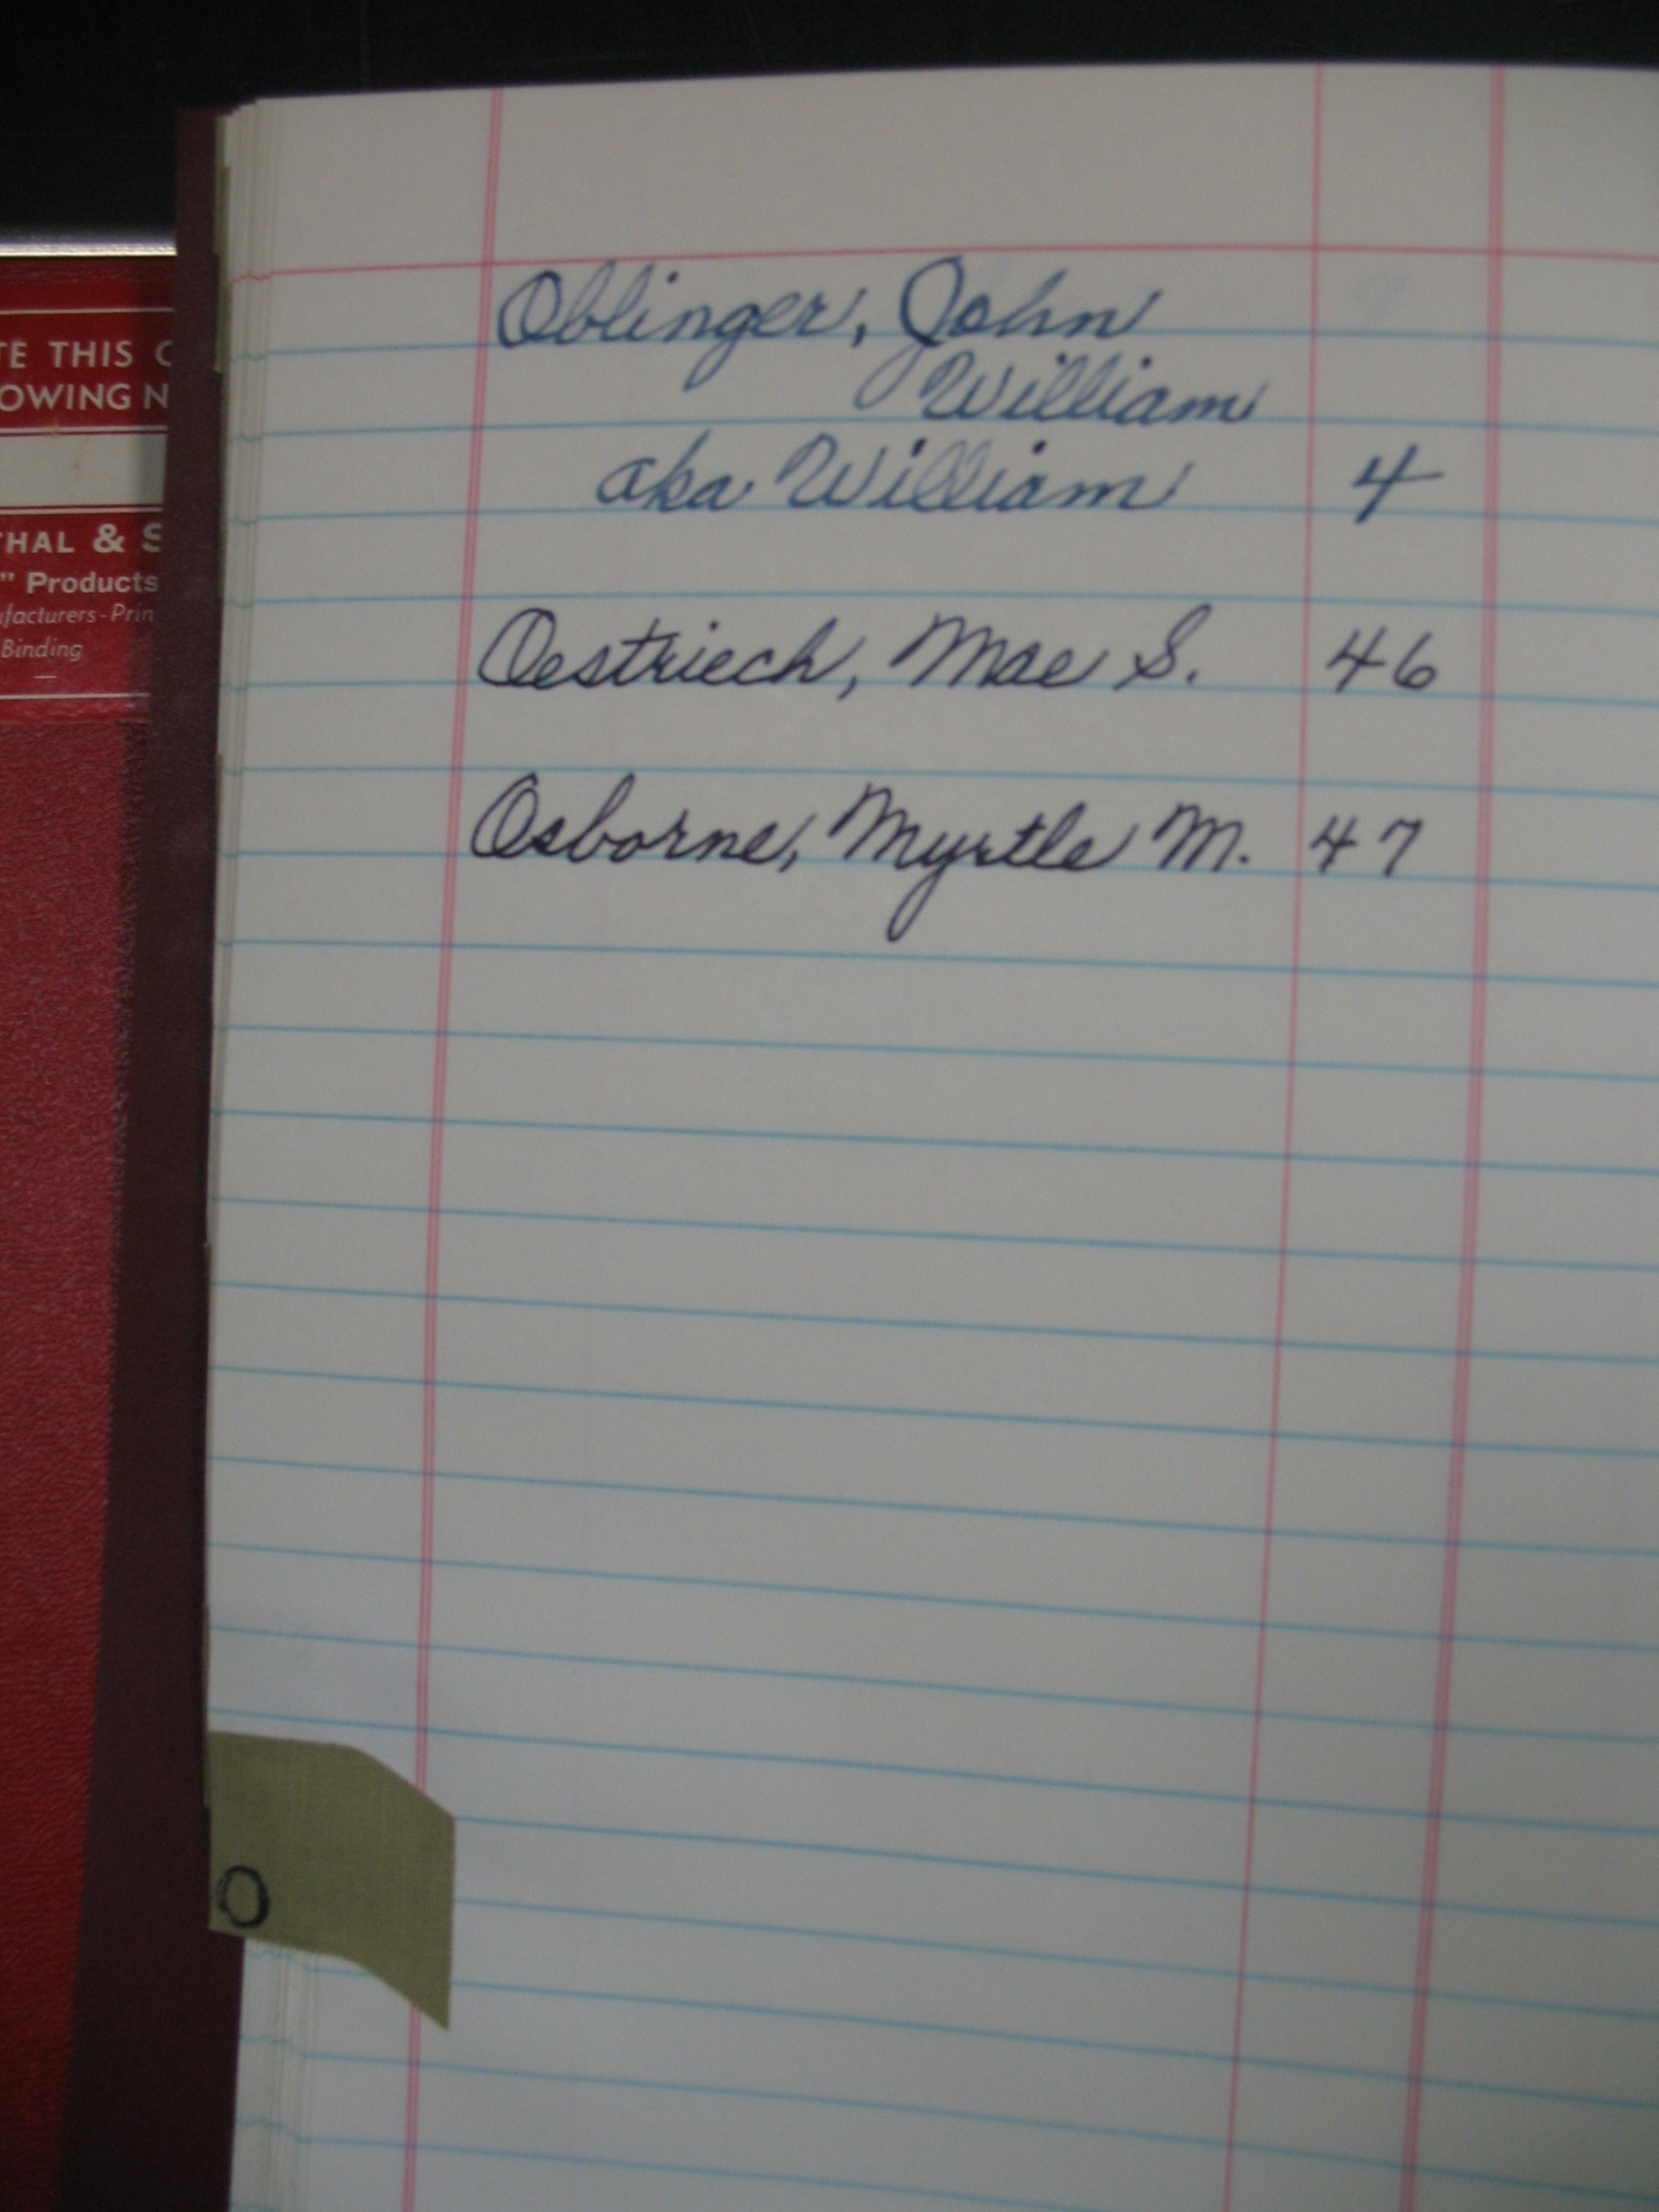 TE THIS
OWING N
THAL & S
" Products
facturers - Prin
Binding
Oblinger, John
William
aka William 4
Oestriech, Mae S. 46
Osborne, Myrtle M. 47
O